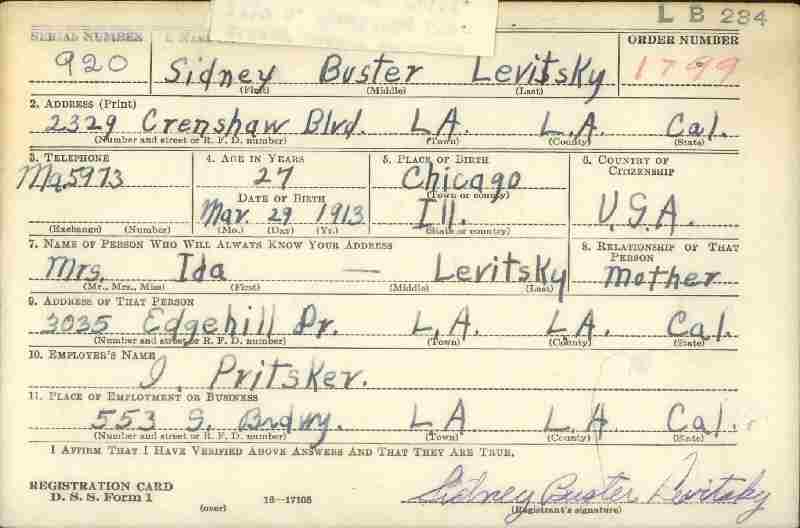 L B 234
SERIAL NUMBER ORDER NUMBER
920 Sidney Buster Levitsky 1799
(First) (Middle) (Last)
2. ADDRESS (Print)
2329 Crenshaw Blvd. L.A. L.A. Cal.
(Number and street or R. F. D. number) (Town) (County) (State)
3. TELEPHONE 4. AGE IN YEARS 5. PLACE OF BIRTH 6. COUNTRY OF CITIZENSHIP
Ma5973 27 Chicago
(Town or county)
DATE OF BIRTH
Mar. 29 1913 Ill. U.S.A.
(Exchange) (Number) (Mo.) (Day) (Yr.) (State or country)
7. NAME OF PERSON WHO WILL ALWAYS KNOW YOUR ADDRESS 8. RELATIONSHIP OF THAT PERSON
Mrs. Ida — Levitsky Mother
(Mr., Mrs., Miss) (First) (Middle) (Last)
9. ADDRESS OF THAT PERSON
3035 Edgehill Dr. L.A. L.A. Cal.
(Number and street or R. F. D. number) (Town) (County) (State)
10. EMPLOYER'S NAME
I. Pritsker.
11. PLACE OF EMPLOYMENT OR BUSINESS
553 S. Brdwy. L.A. L.A. Cal.
(Number and street or R. F. D. number) (Town) (County) (State)
I AFFIRM THAT I HAVE VERIFIED ABOVE ANSWERS AND THAT THEY ARE TRUE.
REGISTRATION CARD
D. S. S. Form 1 (over) 16—17105 Sidney Buster Levitsky
(Registrant's signature)